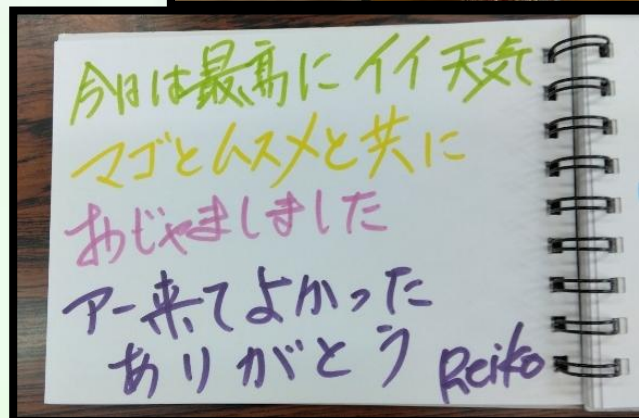 今日は最高にイイ天気
マゴとムスメと共に
おじゃましました
アー来てよかった
ありがとう Reiko